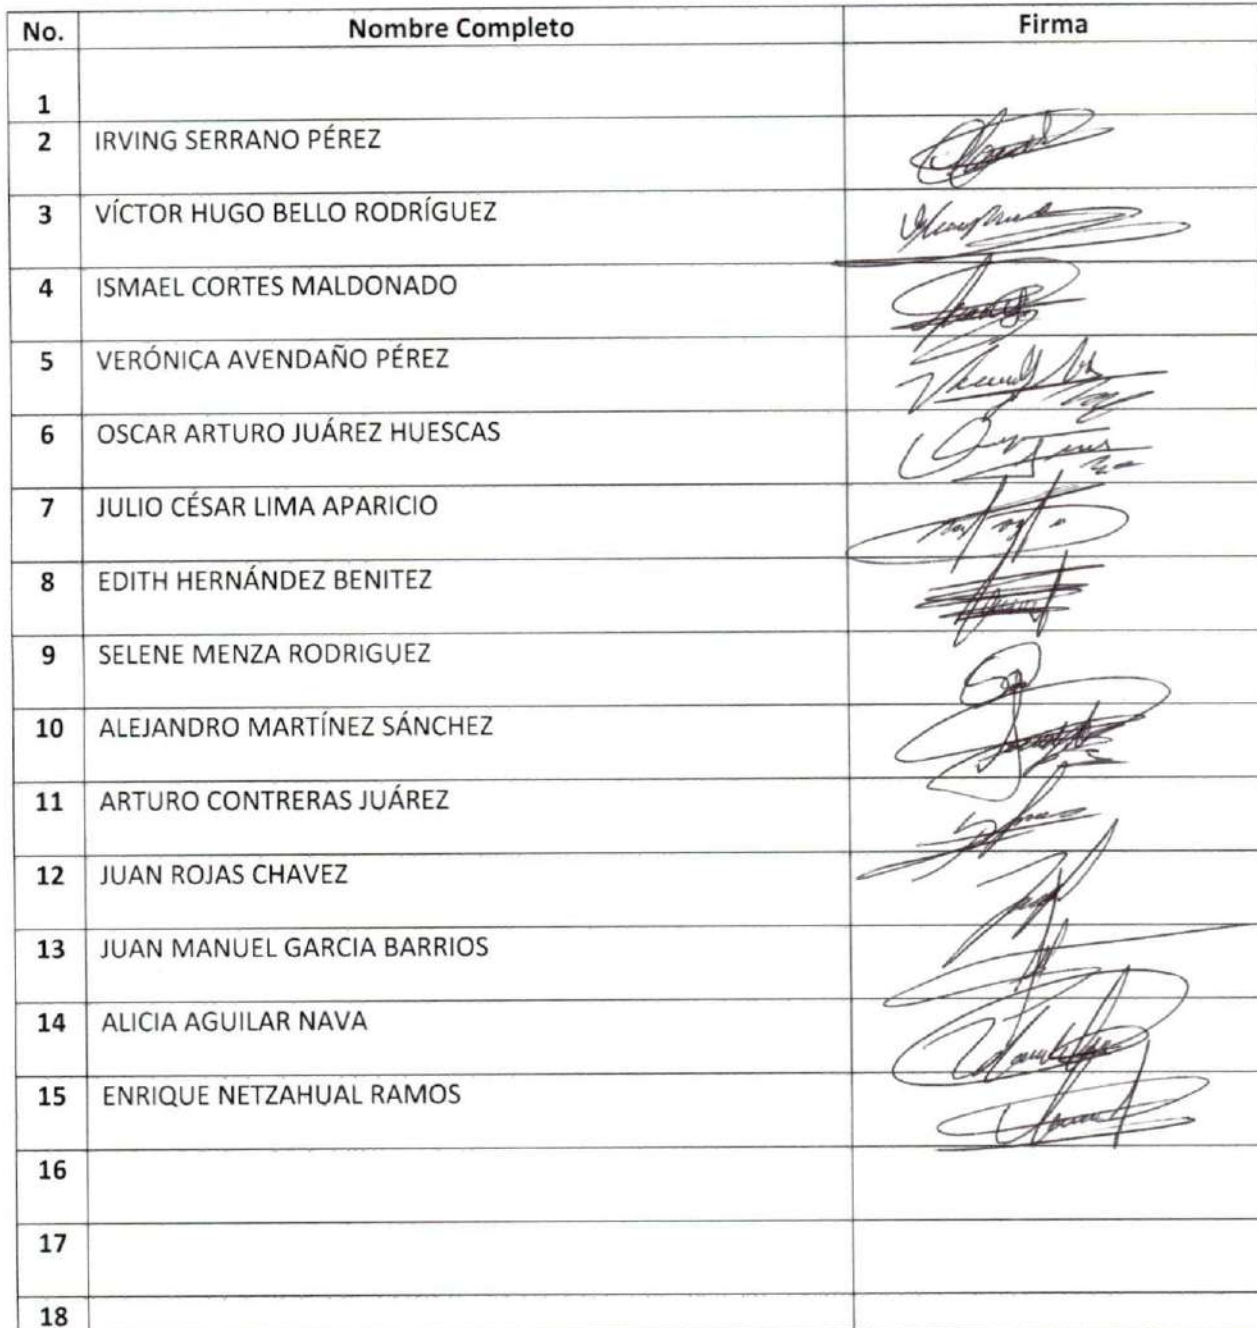 No. Nombre Completo Firma
1
2 IRVING SERRANO PÉREZ
3 VÍCTOR HUGO BELLO RODRÍGUEZ
4 ISMAEL CORTES MALDONADO
5 VERÓNICA AVENDAÑO PÉREZ
6 OSCAR ARTURO JUÁREZ HUESCAS
7 JULIO CÉSAR LIMA APARICIO
8 EDITH HERNÁNDEZ BENITEZ
9 SELENE MENZA RODRIGUEZ
10 ALEJANDRO MARTÍNEZ SÁNCHEZ
11 ARTURO CONTRERAS JUÁREZ
12 JUAN ROJAS CHAVEZ
13 JUAN MANUEL GARCIA BARRIOS
14 ALICIA AGUILAR NAVA
15 ENRIQUE NETZAHUAL RAMOS
16
17
18